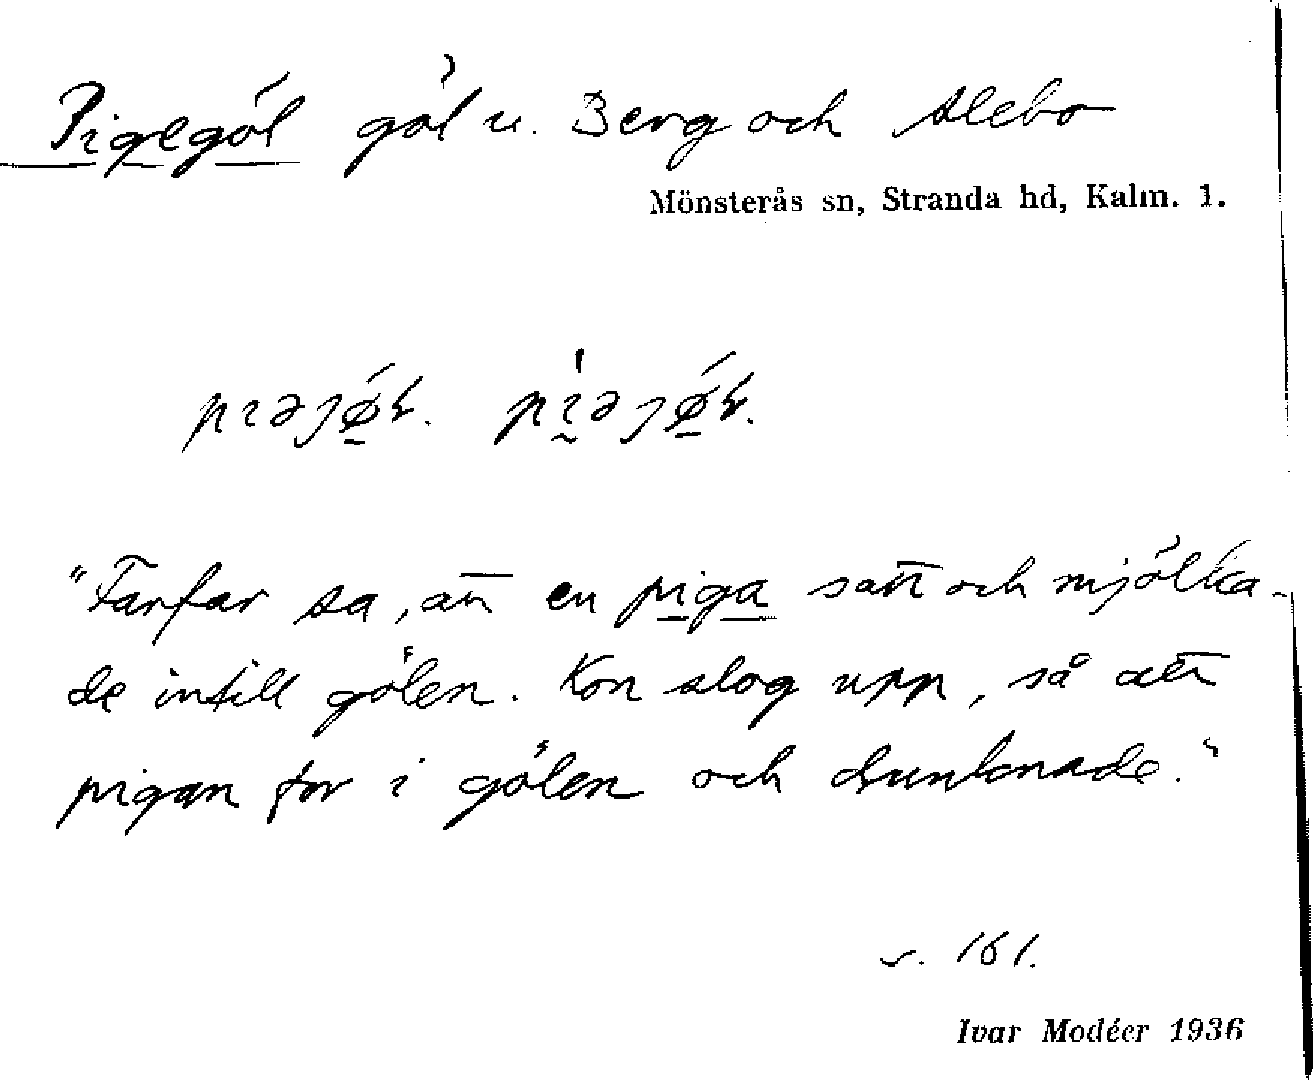 Pigegöl göl u. Berg och Alebo
Mönsterås sn, Stranda hd, Kalm. 1.
"Farfar sa, att en piga satt och mjölka-
de intill gölen. Kon slog upp, så att
pigan for i gölen och drunknade."
s. 161.
Ivar Modéer 1936